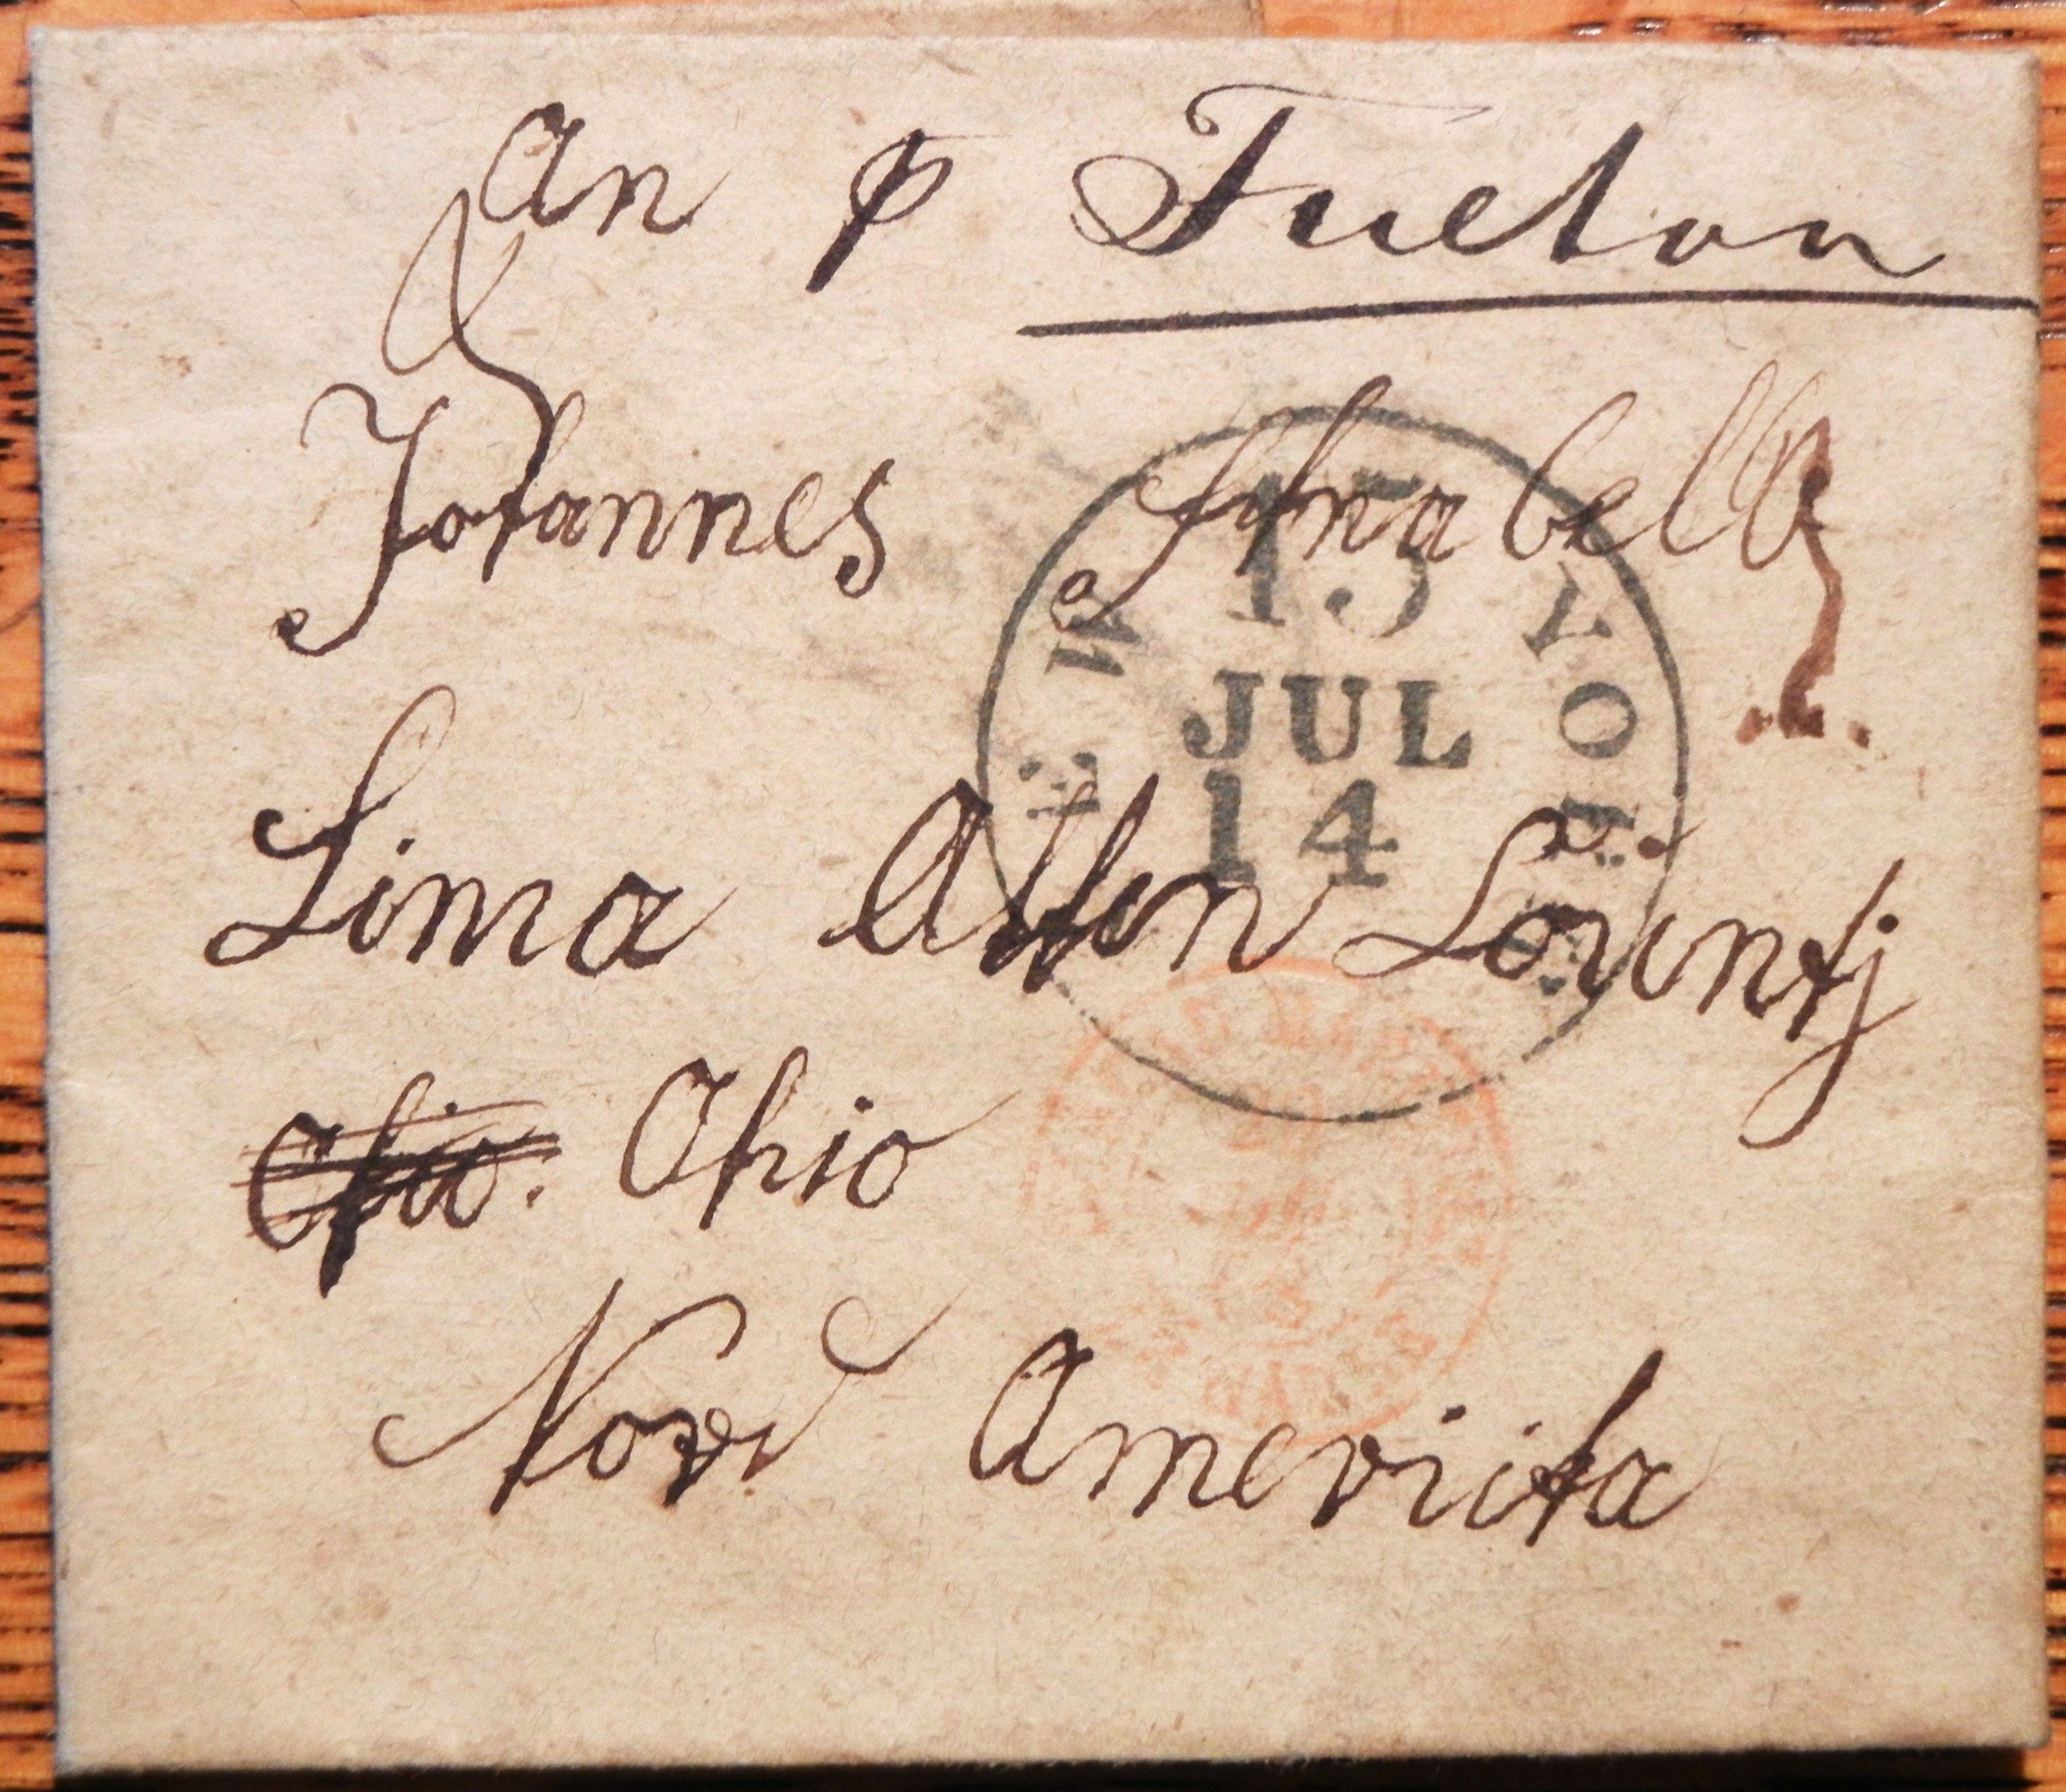 An p Fulton
Johannes Schnabell
Lima Allen Countj
Ohio. Ohio
Nord Amerika
NEW YORK
15
JUL
14